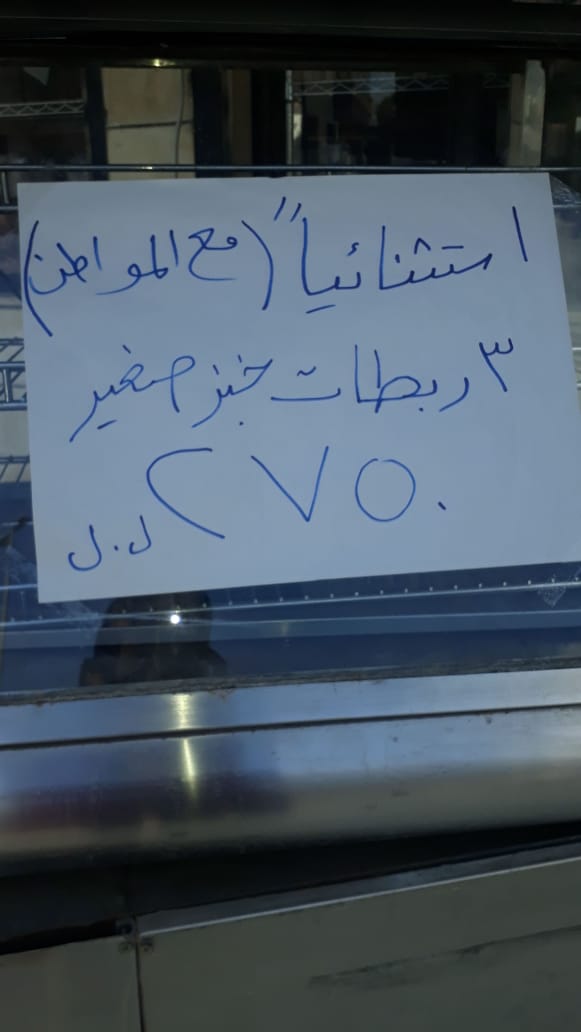 استثنائياً (مع المواطن)
٣ ربطات خبز صغير
٢٧٥٠ ل.ل